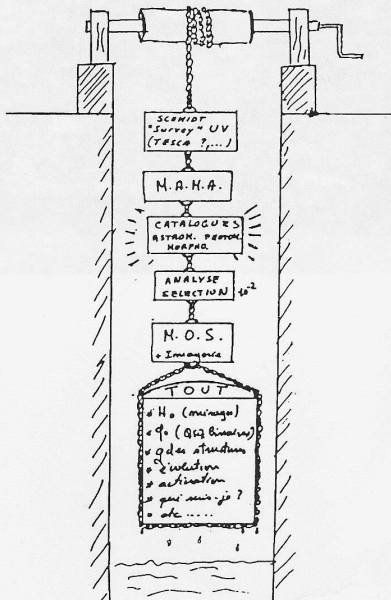 SCHMIDT
"Survey" UV
(TESCA ?,...)
M.A.M.A.
CATALOGUES
ASTROM. PHOTOM.
MORPHO.
ANALYSE
SELECTION 10⁻²
M.O.S.
+ Imagerie
TOUT
* H₀ (mirages)
* q₀ (QSO Binaires)
* gdes structures
* évolution
* activation
* qui suis-je ?
* etc .....